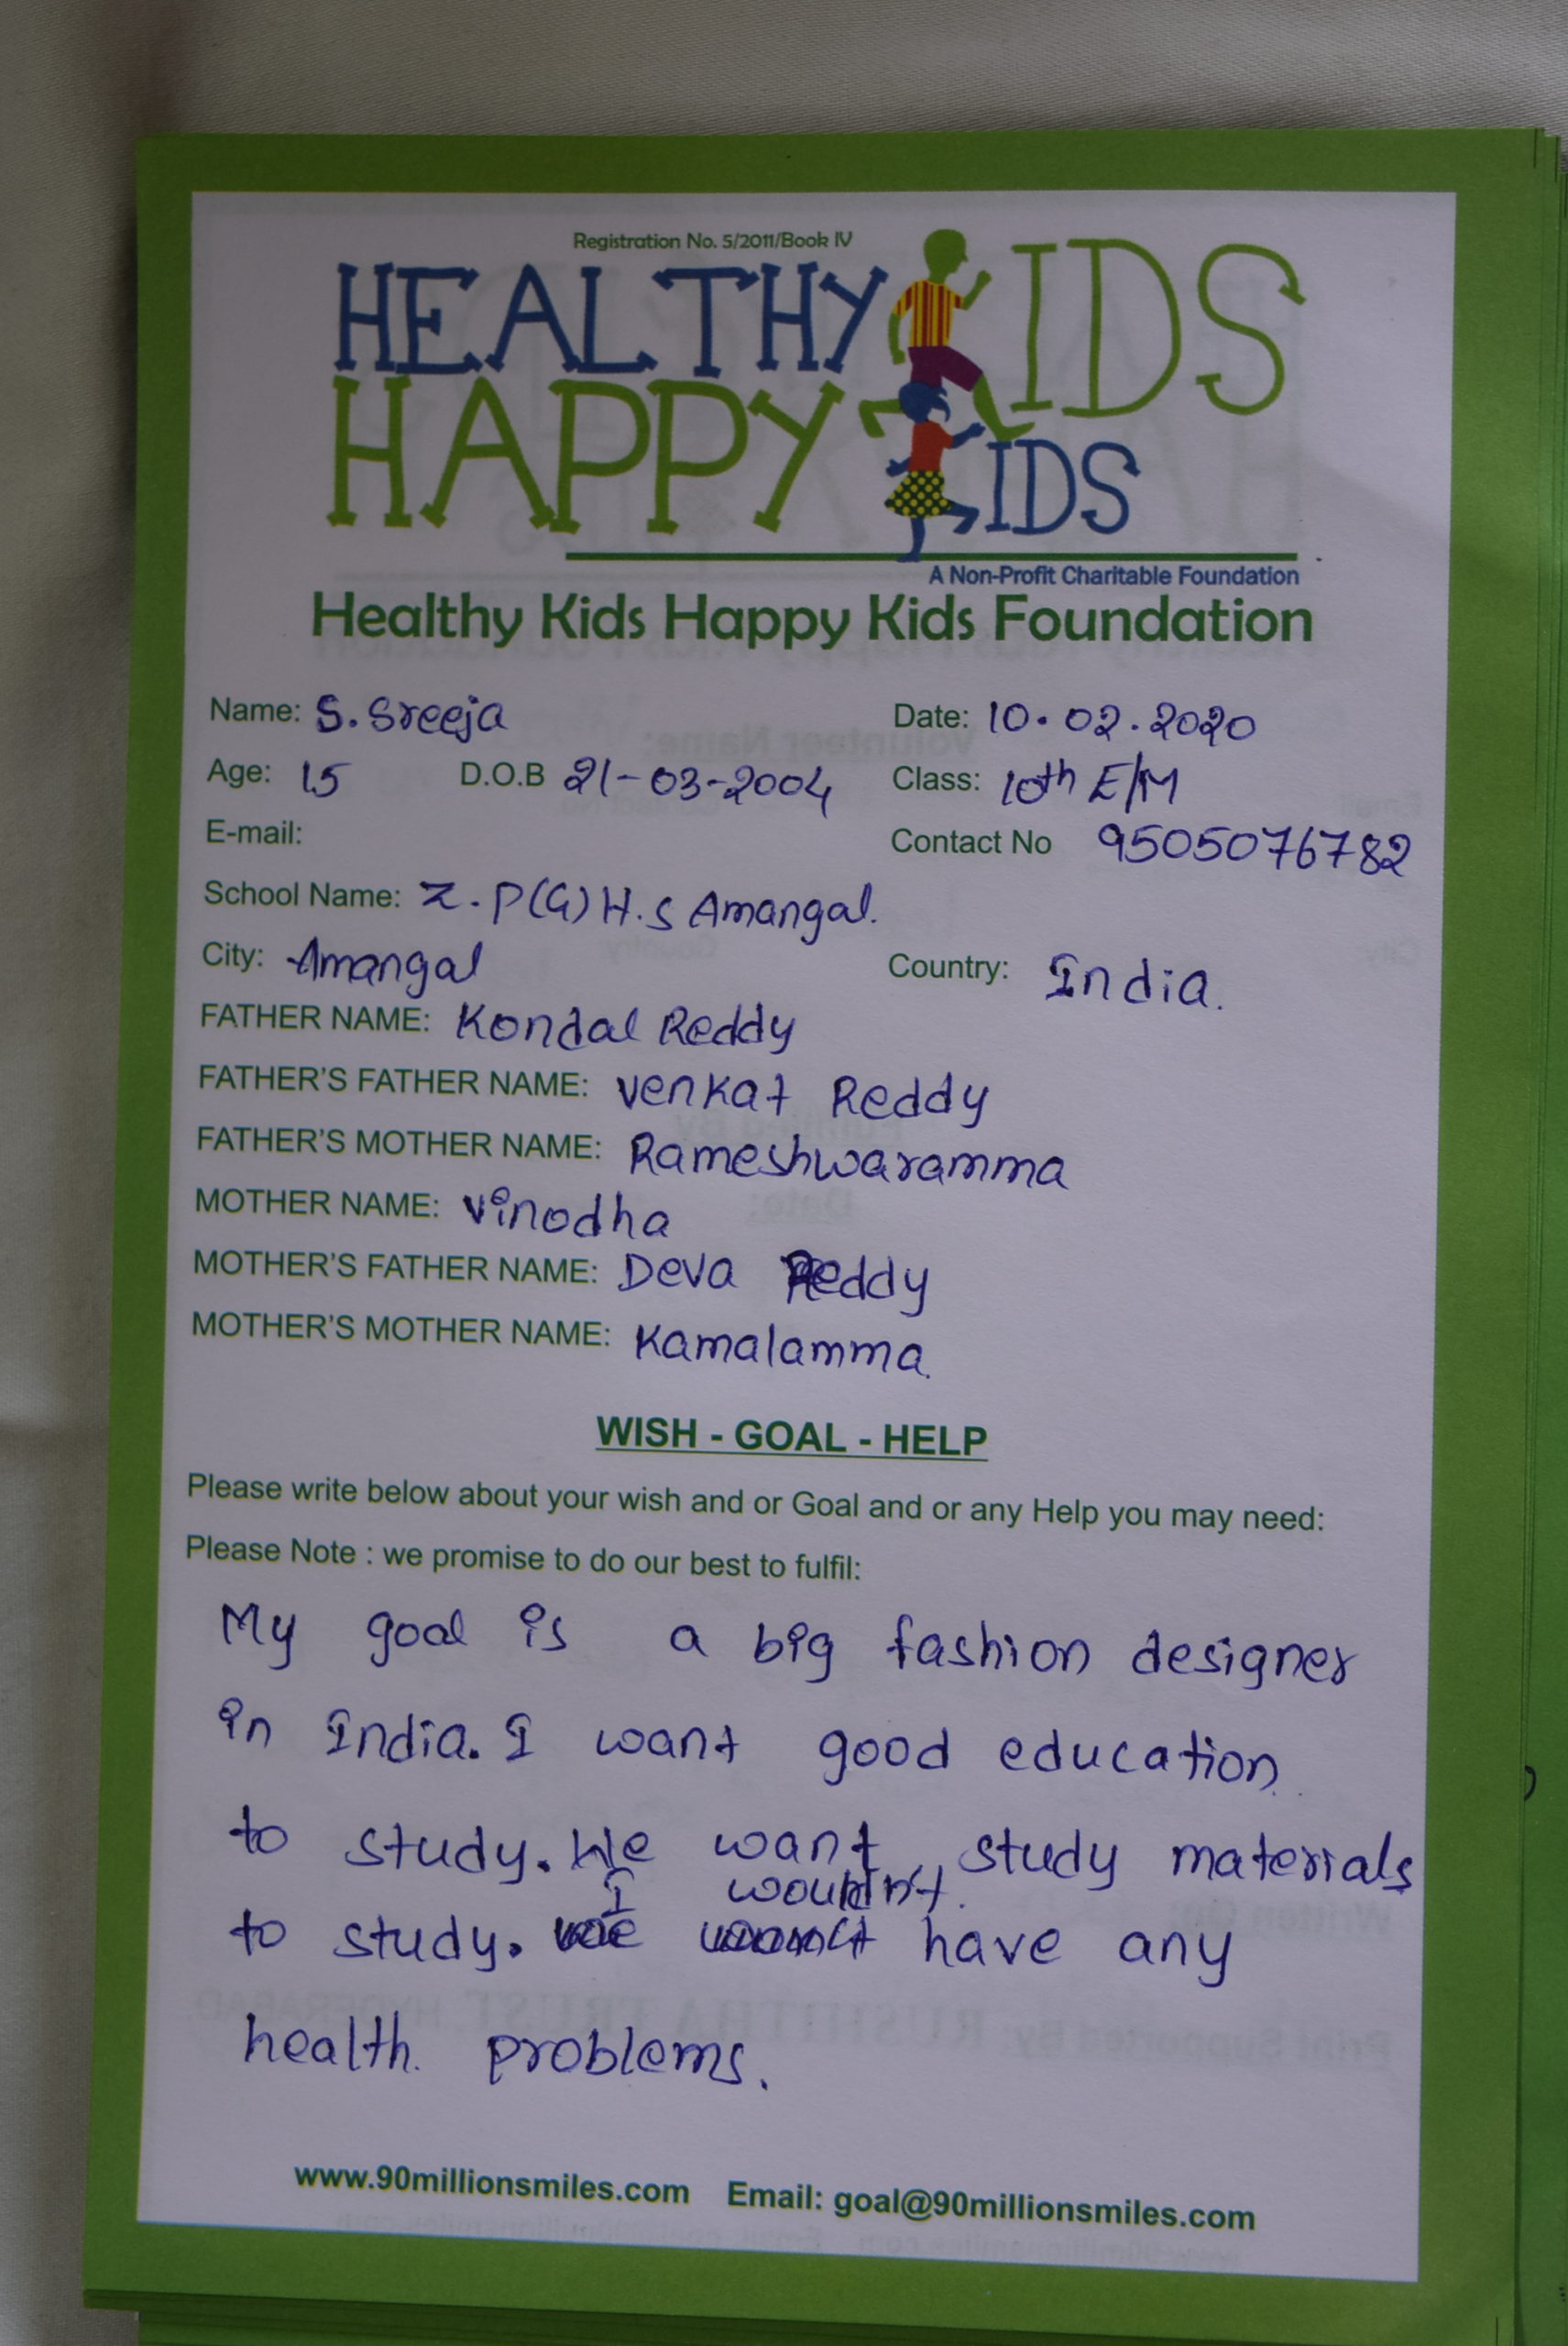 Registration No. 5/2011/Book IV
HEALTHY KIDS
HAPPY KIDS
A Non-Profit Charitable Foundation
Healthy Kids Happy Kids Foundation
Name: S. Sreeja Date: 10.02.2020
Age: 15 D.O.B 21-03-2004 Class: 10th E/M
E-mail: Contact No 9505076782
School Name: Z.P(G)H.S Amangal.
City: Amangal Country: India.
FATHER NAME: Kondal Reddy
FATHER'S FATHER NAME: Venkat Reddy
FATHER'S MOTHER NAME: Rameshwaramma
MOTHER NAME: Vinodha
MOTHER'S FATHER NAME: Deva Reddy
MOTHER'S MOTHER NAME: Kamalamma.
WISH - GOAL - HELP
Please write below about your wish and or Goal and or any Help you may need:
Please Note : we promise to do our best to fulfil:
My goal is a big fashion designer
in India. I want good education
to study. We want study materials
I
to study. have any
health problems.
www.90millionsmiles.com Email: goal@90millionsmiles.com